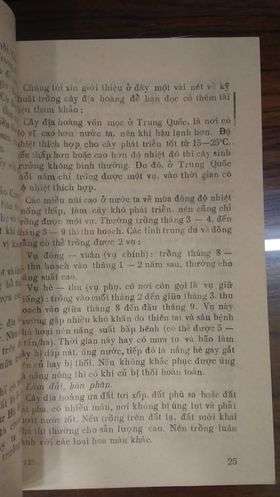 Chúng tôi xin giới thiệu ở đây một vài nét về kỹ
thuật trồng cây địa hoàng để bạn đọc có thêm tài
liệu tham khảo:
Cây địa hoàng vốn mọc ở Trung Quốc, là nơi có
vĩ cao hơn nước ta, nên khí hậu lạnh hơn. Độ
nhiệt thích hợp cho cây phát triển tốt từ 15—25°C.
thấp hơn hoặc cao hơn độ nhiệt đó thì cây sinh
trưởng không bình thường. Do đó, ở Trung Quốc
mỗi năm chỉ trồng được một vụ, vào thời gian có
độ nhiệt thích hợp.
Các miền núi cao ở nước ta về mùa đông độ nhiệt
xuống thấp, làm cây khó phát triển, nên cũng chỉ
trồng được một vụ. Thường trồng tháng 3 — 4, đến
tháng 8 — 9 thì thu hoạch. Các tỉnh trung du và đồng
bằng có thể trồng được 2 vụ:
Vụ đông — xuân (vụ chính): trồng tháng 8 —
thu hoạch vào tháng 1 — 2 năm sau, thường cho
năng suất cao.
Vụ hè — thu (vụ phụ, có nơi còn gọi là vụ giữ
giống): trồng vào cuối tháng 2 đến giữa tháng 3, thu
hoạch vào giữa tháng 8 đến đầu tháng 9. Vụ này
thường gặp nhiều khó khăn do thiên tai và sâu bệnh
phá hoại nên năng suất bấp bênh (có thể được 5 —
tấn/ha). Thời gian này hay có mưa to và bão làm
cây bị dập nát, úng nước, tiếp đó là nắng hè gay gắt
nên củ hay bị thối. Nếu không khắc phục được úng
và nắng nóng thì có khi củ bị thối hoàn toàn.
Làm đất, bón phân.
Cây địa hoàng ưa đất tơi xốp, đất phù sa hoặc đất
cát pha, có nhiều màu, nơi không bị úng lụt và phải
thoát nước tốt. Nếu trồng trên đất lạ, đất mới khai
phá thì thường cho sản lượng cao. Nên trồng luân
canh với các loại hoa màu khác.
25